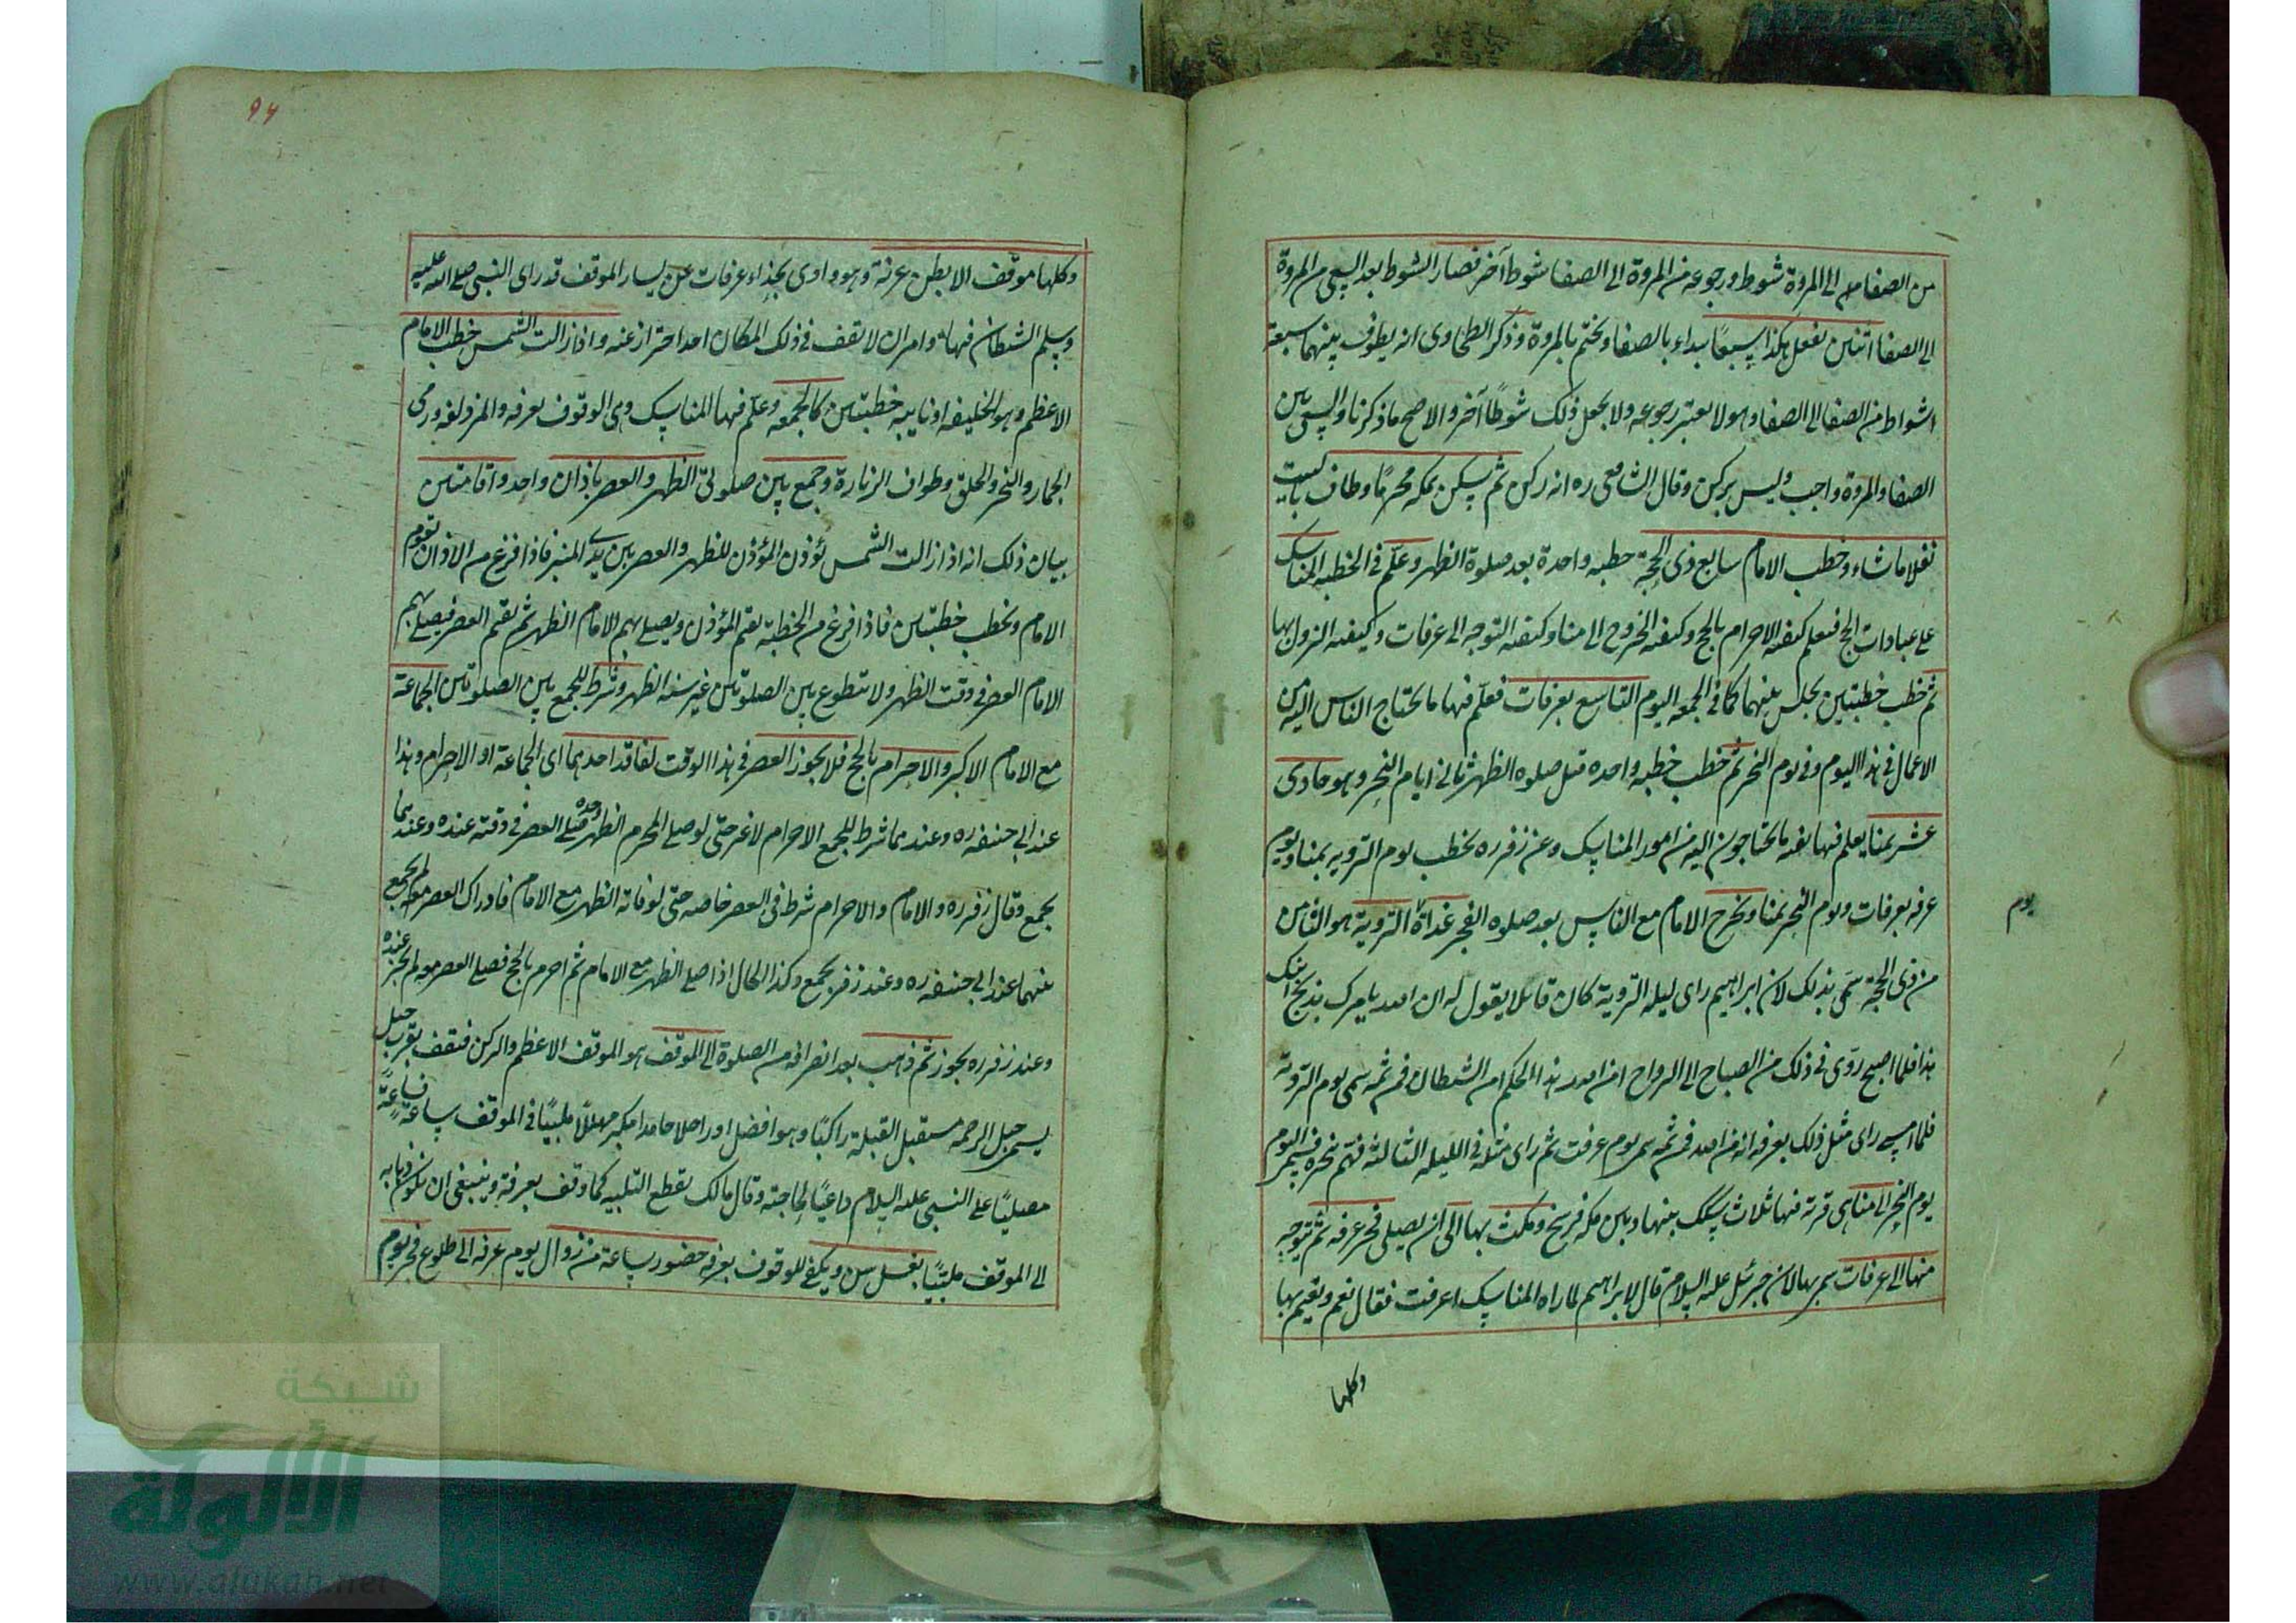 من الصفا منه الى المروة شوط ورجوعه من المروة الى الصفا شوط آخر فصار الشوط بعد السعى من المروة
الى الصفا اثنين يفعل هكذا سبعًا يبداء بالصفا ويختم بالمروة وذكر الطحاوى انه يطوف بينهما سبعة
اشواط من الصفا الى الصفا وهو لا يعتبر رجوعه ولا يجعل ذلك شوطًا آخر والاصح ما ذكرنا والسعى بين
الصفا والمروة واجب وليس بركن وقال الشافعى ره انه ركن ثم يسكن بمكه محرمًا وطاف بالبيت
نفلا ما شاء وخطب الامام سابع ذى الحجة خطبه واحدة بعد صلوة الظهر وعلّم فى الخطبه المناسك
على عبادات الحج فيعلم كيفيه الاحرام بالحج وكيفيه الخروج الى منا وكيفيه التوجه الى عرفات وكيفيه النزول بها
ثم خطب خطبتين يجلس بينهما كما فى الجمعه اليوم التاسع بعرفات فعلّم فيها ما يحتاج الناس اليه من
الاعمال فى هذا اليوم وفى يوم النحر ثم خطب خطبه واحده قبل صلوه الظهر ثانى ايام النحر وهو حادى
عشر بمنا يعلم فيها بقيه ما يحتاجون اليه من امور المناسك وعن زفر ره يخطب يوم الترويه بمنا ويوم
عرفه بعرفات ويوم النحر بمنا ويخرج الامام مع الناس بعد صلوه الفجر غداة التروية هو الثامن
يوم
من ذى الحجة سمى بذلك لان ابراهيم راى ليله التروية كان قائلا يقول له ان الله يامرك بذبح ابنك
هذا فلما اصبح روّى فى ذلك من الصباح الى الرواح امن الله هذا الحكم ام من الشيطان فمن ثمه سمى يوم التروية
فلما امسى راى مثل ذلك بعرفه انه من الله فمن ثمه سمى يوم عرفت ثم راى مثله فى الليله الثالثه فهمّ بنحره فسمى اليوم
يوم النحر الى منا هى قرية فيها ثلاث سكك بينها وبين مكه فرسخ ومكث بها الى ان يصلى فجر عرفه ثم يتوجه
منها الى عرفات سمى بها لان جبرئيل عليه السلام قال لابراهيم لما راه المناسك اعرفت فقال نعم ويقيم بها
وكلها
٩٤
وكلها موقف الا بطن عرنة وهو وادى بحذاء عرفات عن يسار الموقف قد راى النبى صلى الله عليه
وسلم الشيطان فيها وامر ان لا يقف فى ذلك المكان احد احترازا عنه واذا زالت الشمس خطب الامام
الاعظم وهو الخليفه او نايبه خطبتين كالجمعه وعلّم فيها المناسك وهى الوقوف بعرفه والمزدلفه ورمى
الجمار والنحر والحلق وطواف الزيارة وجمع بين صلوتى الظهر والعصر باذان واحد واقامتين
بيان ذلك انه اذا زالت الشمس يؤذن المؤذن للظهر والعصر بين يدى المنبر فاذا فرغ من الاذان يقوم
الامام ويخطب خطبتين فاذا فرغ من الخطبة يقيم المؤذن ويصلى بهم الامام الظهر ثم يقيم العصر فيصلى بهم
الامام العصر فى وقت الظهر ولا يتطوع بين الصلوتين غير سنه الظهر وشرط للجمع بين الصلوتين الجماعة
مع الامام الاكبر والاحرام بالحج فلا يجوز العصر فى هذا الوقت لفاقد احدهما اى الجماعة او الاحرام وهذا
عند ابى حنيفه ره وعندهما شرط للجمع الاحرام لا غير حتى لو صلى المحرم الظهر وحده صلى العصر فى وقته عنده وعندهما
يجمع وقال زفر ره والامام والاحرام شرط فى العصر خاصه حتى لو فاته الظهر مع الامام فادراك العصر معه لم يجمع
بينهما عند ابى حنيفه ره وعند زفر يجمع وكذا الحال اذا صلى الظهر مع الامام ثم احرم بالحج فصلى العصر معه لم يجز عنده
وعند زفر ره يجوز ثم ذهب بعد انصرافه من الصلوة الى الموقف هو الموقف الاعظم والركن فيقف بقرب جبل
يسمى جبل الرحمه مستقبل القبلة راكبًا وهو افضل او راجلا حامدا مكبرا مهللًا ملبيًا فى الموقف ساعة فساعةً
مصليًا على النبى عليه السلام داعيًا لحاجته وقال مالك يقطع التلبيه كما وقف بعرفة وينبغى ان يكون ذهابه
الى الموقف ملبيًا بغسل سن ويكفى للوقوف بعرفه حضور ساعة من زوال يوم عرفه الى طلوع فجر يوم
شبكة
الألوكة
www.alukah.net